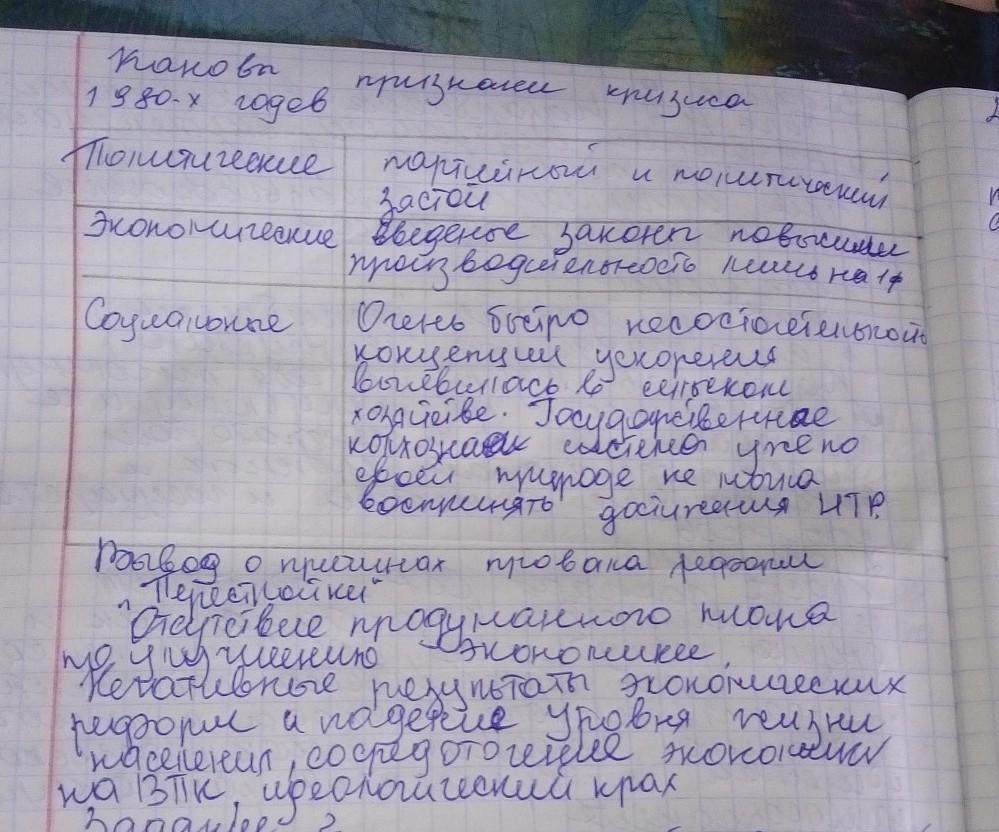 Каковы признаки кризиса
1980-х годов
Политические партийный и политический
застой
Экономические введеные законы повысили
производительность лишь на 1%
Социальные Очень быстро несостоятельность
концепции ускорения
выявилась в сельском
хозяйстве. Государственные
колхозная система уже по
своей природе не могла
воспринять достижения НТР.
Вывод о причинах провала реформ
„Перестройки"
Отсутствие продуманного плана
по улучшению экономики,
негативные результаты экономических
реформ и падение уровня жизни
населения, сосредоточение экономики
на ВПК, идеологический крах